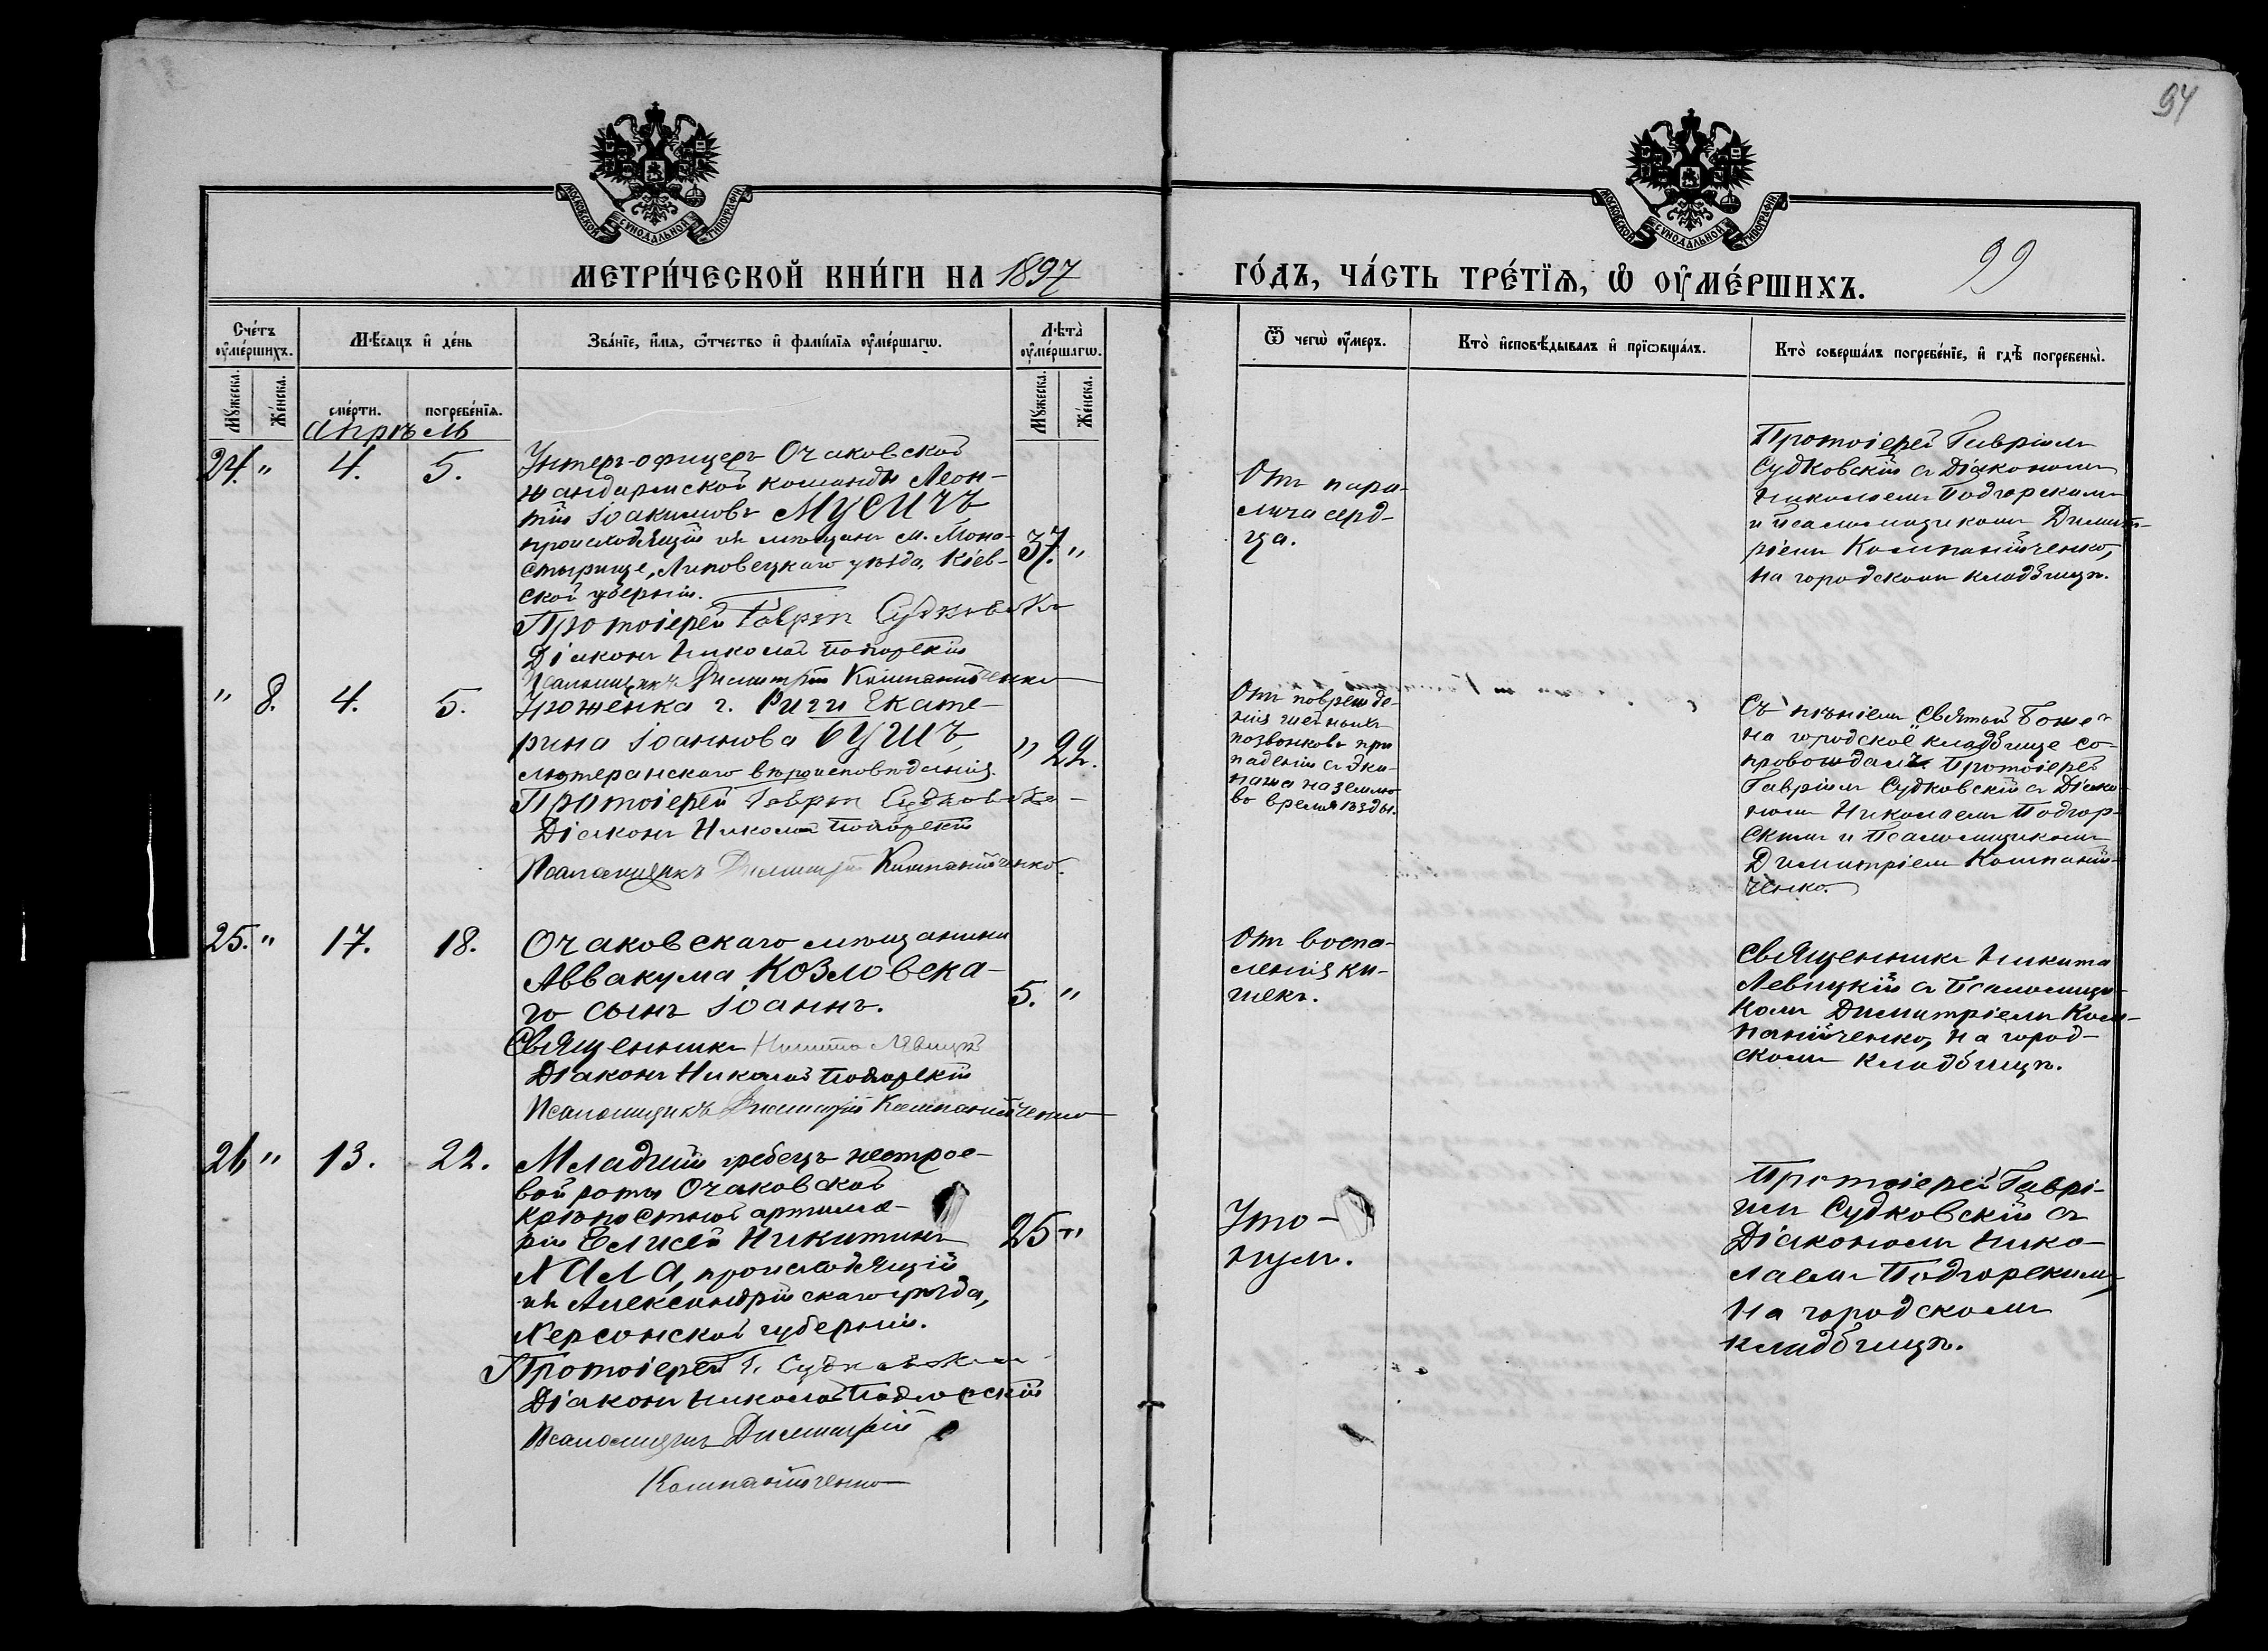 94
МОСКОВСКОЙ СѴНОДАЛЬНОЙ ТИПОГРАФІИ
МОСКОВСКОЙ СѴНОДАЛЬНОЙ ТИПОГРАФІИ
99
МЕТРИ́ЧЕСКОЙ КНИ́ГИ НА 1897
ГО́ДЪ, ЧА́СТЬ ТРЕ́ТЇѦ, Ѡ҆ ОУ҆МЕ́РШИХЪ.
Сче́тъ оу҆ме́ршихъ.
Мѣ́сѧцъ и҆ де́нь
Зва́нїе, и҆́мѧ, ѻ҆́тчество и҆ фами́лїѧ оу҆ме́ршагѡ.
Лѣ́та̀ оу҆ме́ршагѡ.
Ѿ чегѡ̀ оу҆́меръ.
Кто̀ и҆сповѣ́дывалъ и҆ прїѡбща́лъ.
Кто̀ соверша́лъ погребе́нїе, и҆ гдѣ̀ погребены̀.
Мꙋ́жеска.
Же́нска.
сме́рти.
погребе́нїѧ.
Мꙋ́жеска.
Же́нска.
Апрѣль
24. "
4.
5.
Унтеръ-офицеръ Очаковской
жандармской команды Леон-
тій Іоакимовъ МУСИЧЪ
происходящій изъ мѣщанъ м. Мона-
стырище, Липовецкаго уѣзда, Кіев-
ской губерніи.
Протоіерей Гавріилъ Судковскій
Діаконъ Николай Подгорскій
Псаломщикъ Димитрій Компанійченко
37. "
Отъ пара-
лича серд-
ца.
Протоіерей Гавріилъ
Судковскій съ Діакономъ
Николаемъ Подгорскимъ
и Псаломщикомъ Димит-
ріемъ Компанійченко,
на городскомъ кладбищѣ.
" 8.
4.
5.
Уроженка г. Риги Екате-
рина Іоаннова БУШЪ,
лютеранскаго вѣроисповѣданія.
Протоіерей Гавріилъ Судковскій
Діаконъ Николай Подгорскій
Псаломщикъ Димитрій Компанійченко.
" 22.
Отъ поврежде-
нія шейныхъ
позвонковъ при
паденіи съ эки-
пажа на землю
во время ѣзды.
Съ пѣніемъ Святый Боже
на городское кладбище со-
провождалъ Протоіерей
Гавріилъ Судковскій съ Діако-
номъ Николаемъ Подгор-
скимъ и Псаломщикомъ
Димитріемъ Компаній-
ченко.
25. "
17.
18.
Очаковскаго мѣщанина
Аввакума КОЗЛОВСКА-
го сынъ Іоаннъ.
Священникъ Никита Левицкій
Діаконъ Николай Подгорскій
Псаломщикъ Димитрій Компанійченко
5. "
Отъ воспа-
ленія ки-
шекъ.
Священникъ Никита
Левицкій съ Псаломщи-
комъ Димитріемъ Ком-
панійченко, на город-
скомъ кладбищѣ.
26 "
13.
22.
Младшій гребецъ нестрое-
вой роты Очаковской
крѣпостной артилле-
ріи Елисей Никитинъ
происходящій
изъ Александрійскаго уѣзда,
Херсонской губерніи.
Протоіерей Г. Судковскій
Діаконъ Николай Подгорскій
Псаломщикъ Димитрій
Компанійченко
25 "
Уто-
нулъ.
Протоіерей Гаврі-
илъ Судковскій съ
Діакономъ Нико-
лаемъ Подгорскимъ,
на городскомъ
кладбищѣ.